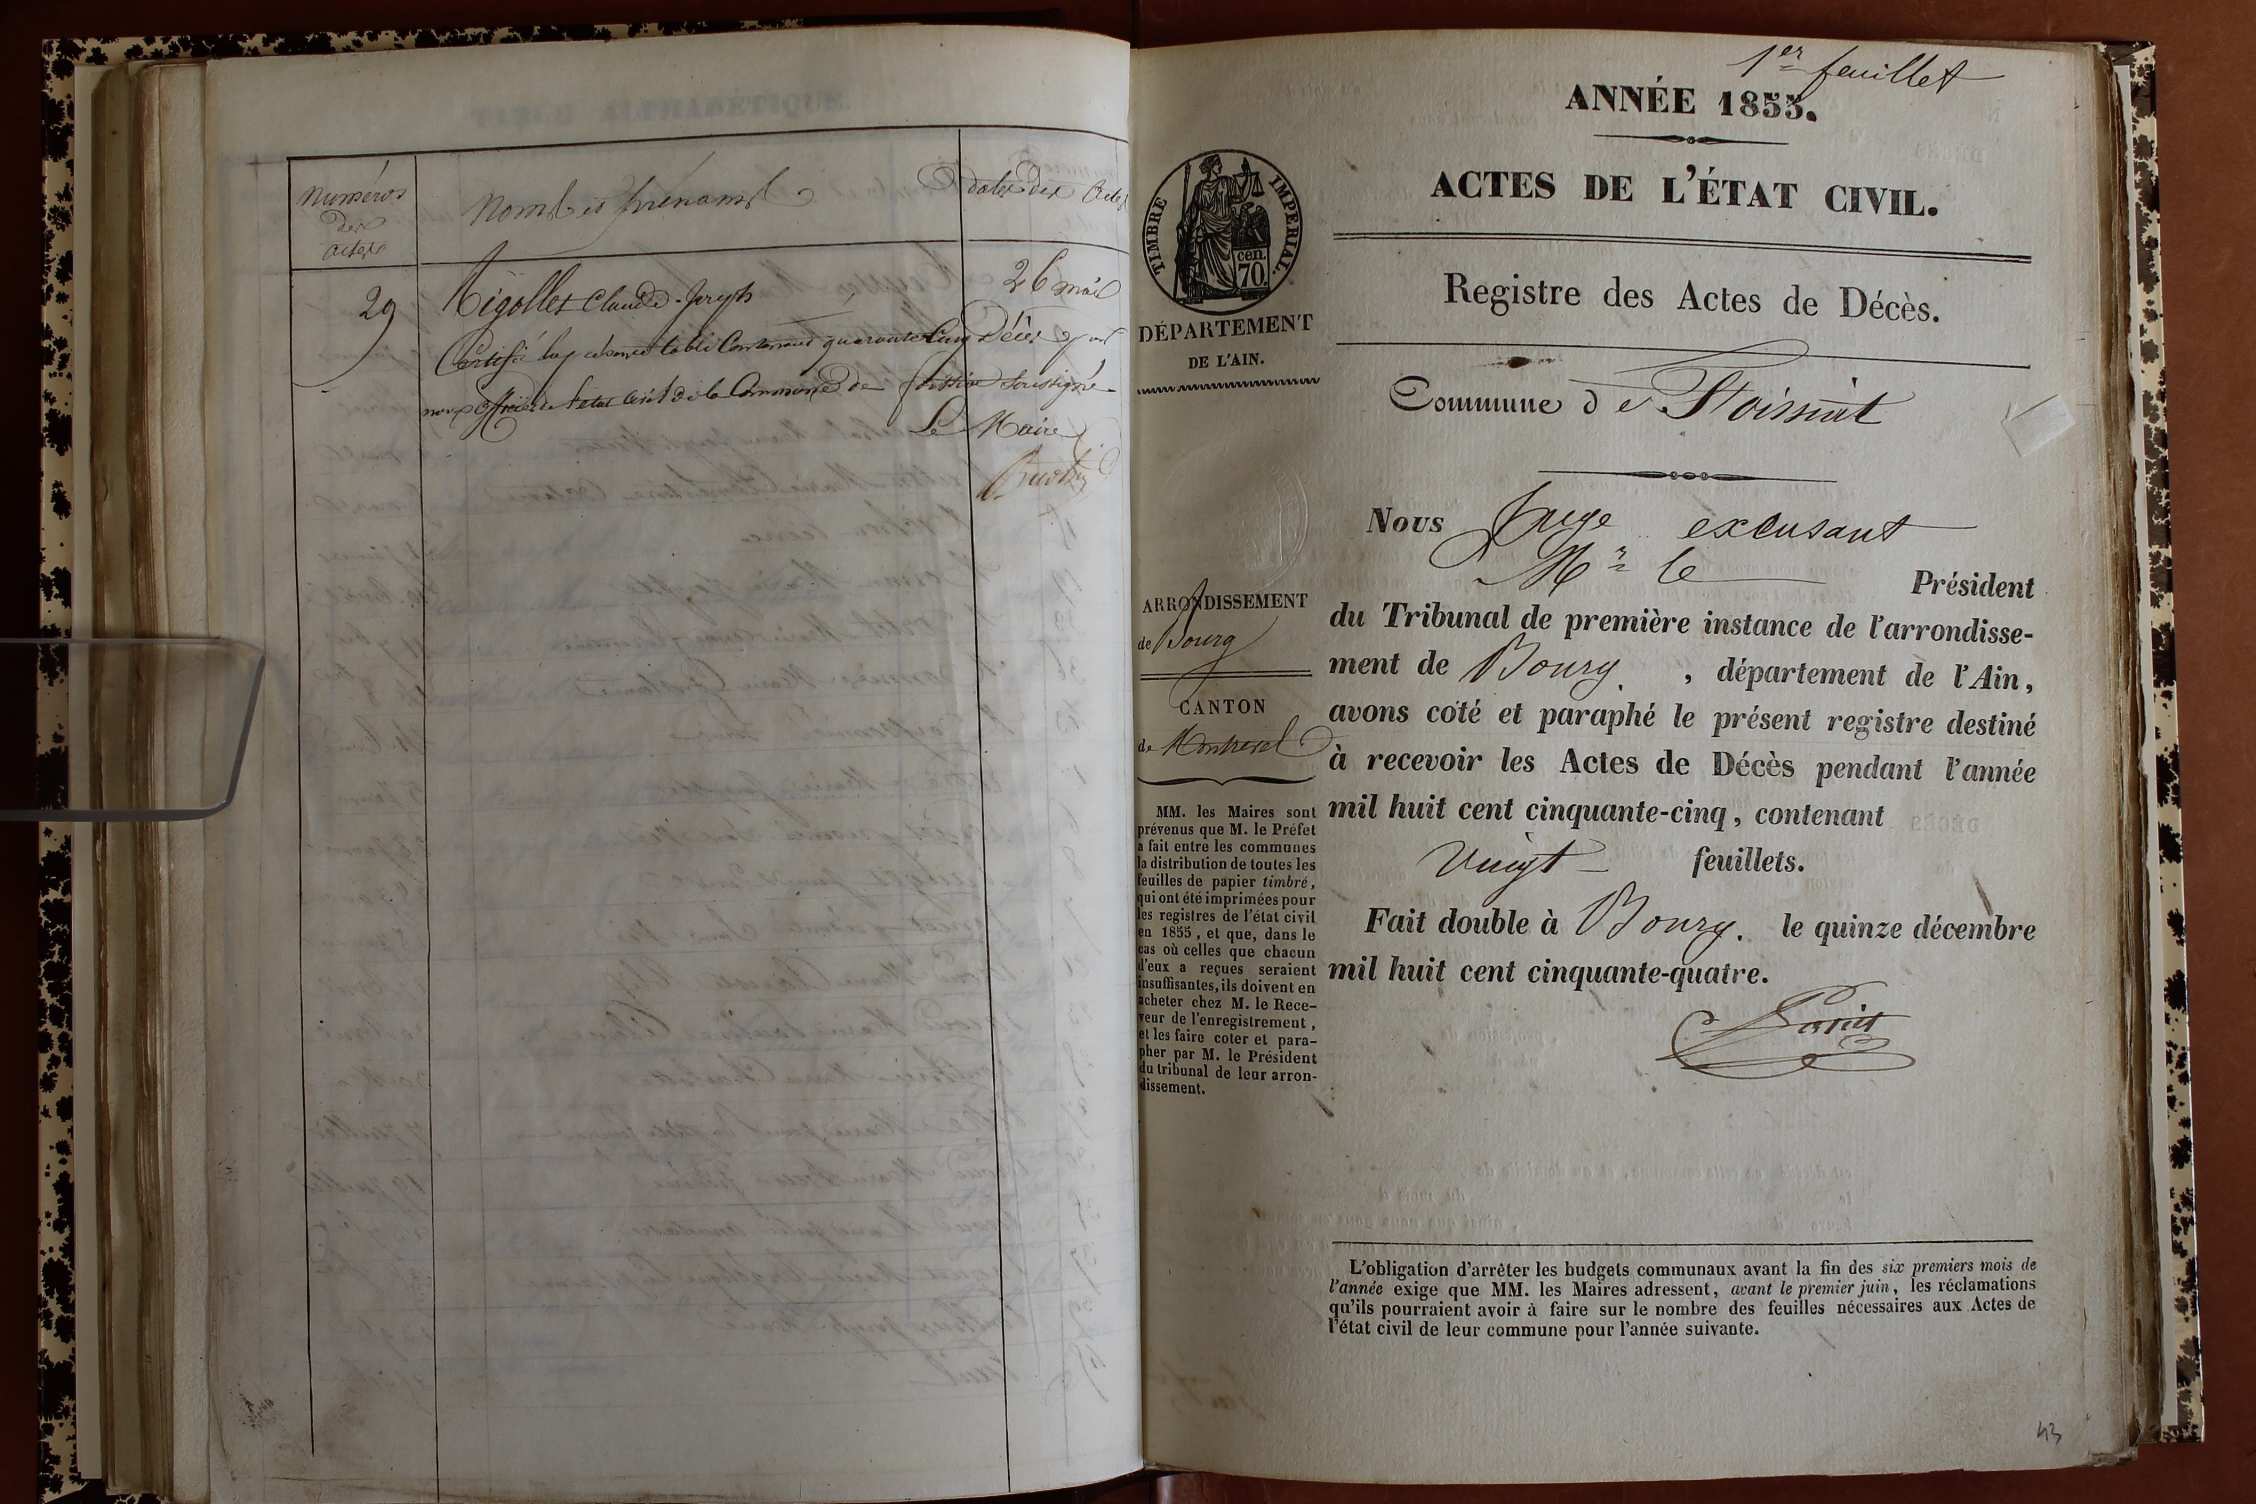 Numéros
des
actes
Noms et prénoms
dates des Actes
29
Rigollet Claude-Joseph
26 mai
Certifié la présente table contenant quarante cinq Décès par
nous officier de l'état civil de la Commune de foissiat soussigné
Le Maire
1er feuillet
ANNÉE 1855.
ACTES DE L'ÉTAT CIVIL.
Registre des Actes de Décès.
Commune de Foissiat
TIMBRE IMPERIAL.
cen.
70.
DÉPARTEMENT
DE L'AIN.
ARRONDISSEMENT
de Bourg
CANTON
de Montrevel
MM. les Maires sont
prévenus que M. le Préfet
a fait entre les communes
la distribution de toutes les
feuilles de papier timbré,
qui ont été imprimées pour
les registres de l'état civil
en 1855, et que, dans le
cas où celles que chacun
d'eux a reçues seraient
insuffisantes, ils doivent en
acheter chez M. le Rece-
veur de l'enregistrement,
et les faire coter et para-
pher par M. le Président
du tribunal de leur arron-
dissement.
Nous Juge excusant
Mr le Président
du Tribunal de première instance de l'arrondisse-
ment de Bourg, département de l'Ain,
avons coté et paraphé le présent registre destiné
à recevoir les Actes de Décès pendant l'année
mil huit cent cinquante-cinq, contenant
vingt feuillets.
Fait double à Bourg. le quinze décembre
mil huit cent cinquante-quatre.
L'obligation d'arrêter les budgets communaux avant la fin des six premiers mois de
l'année exige que MM. les Maires adressent, avant le premier juin, les réclamations
qu'ils pourraient avoir à faire sur le nombre des feuilles nécessaires aux Actes de
l'état civil de leur commune pour l'année suivante.
43